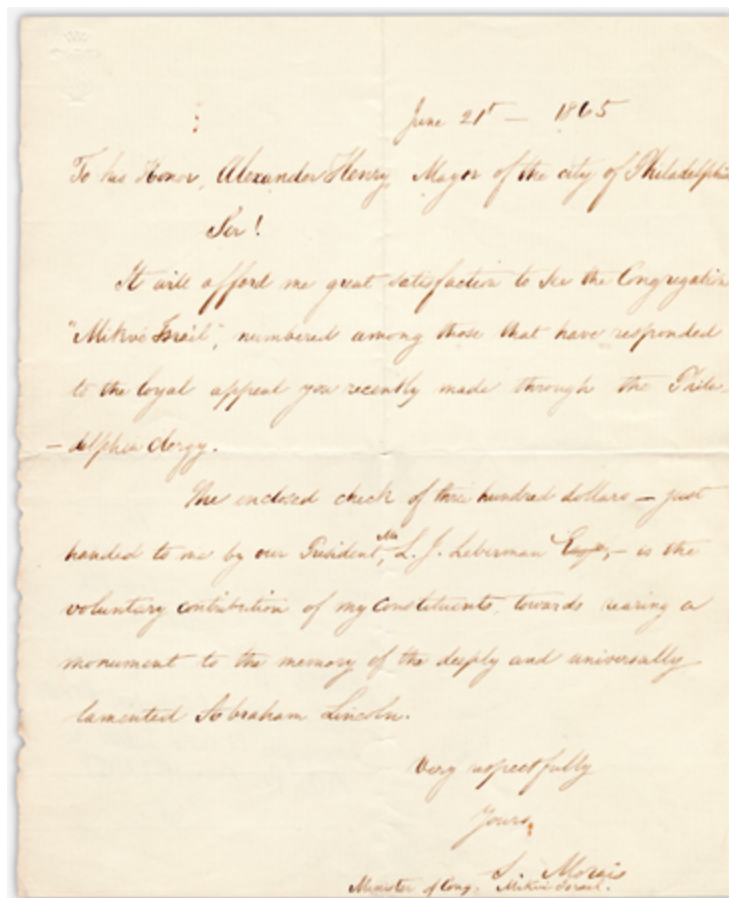 June 21st — 1865
To his Honor, Alexander Henry, Mayor of the city of Philadelphia
Sir!
It will afford me great satisfaction to see the Congregation
"Mikvé Israël", numbered among those that have responded
to the loyal appeal you recently made through the Phila-
-delphia clergy.
The enclosed check of three hundred dollars — just
handed to me by our President, Mr L. J. Leberman Esqr, — is the
voluntary contribution of my constituents, towards rearing a
monument to the memory of the deeply and universally
lamented Abraham Lincoln.
Very respectfully
Yours,
S. Morais
Minister of Cong. Mikvé Israel.